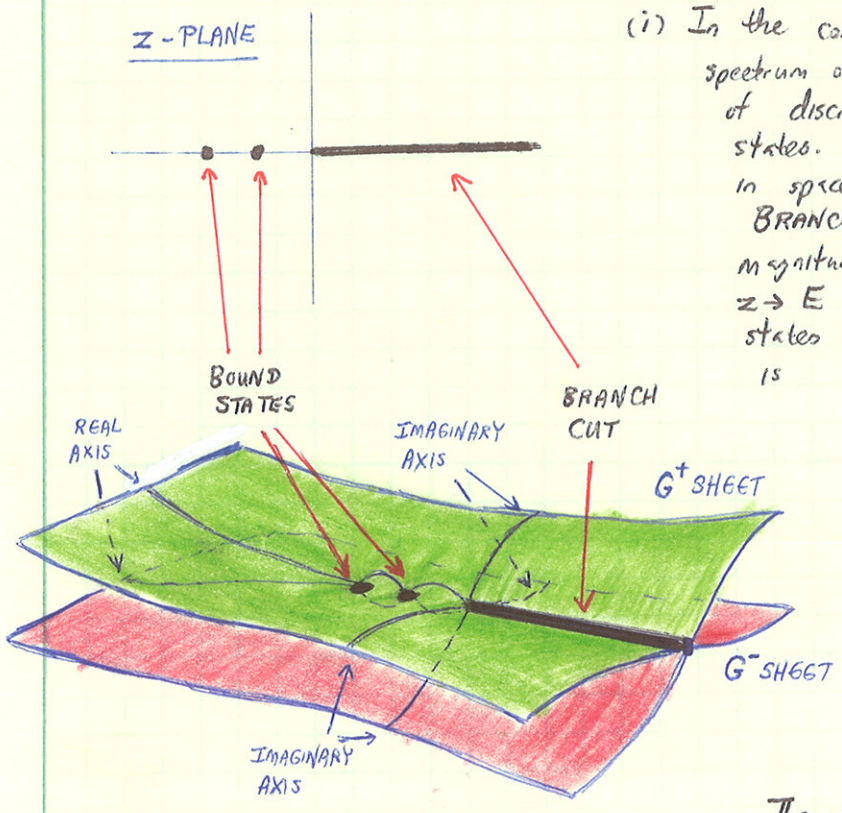 Z-PLANE
(i) In the
spectrum
of
states.
in
BRANCH
z → E
states
is
BOUND
STATES
BRANCH
CUT
REAL
AXIS
IMAGINARY
AXIS
G⁺ SHEET
G⁻ SHEET
IMAGINARY
AXIS